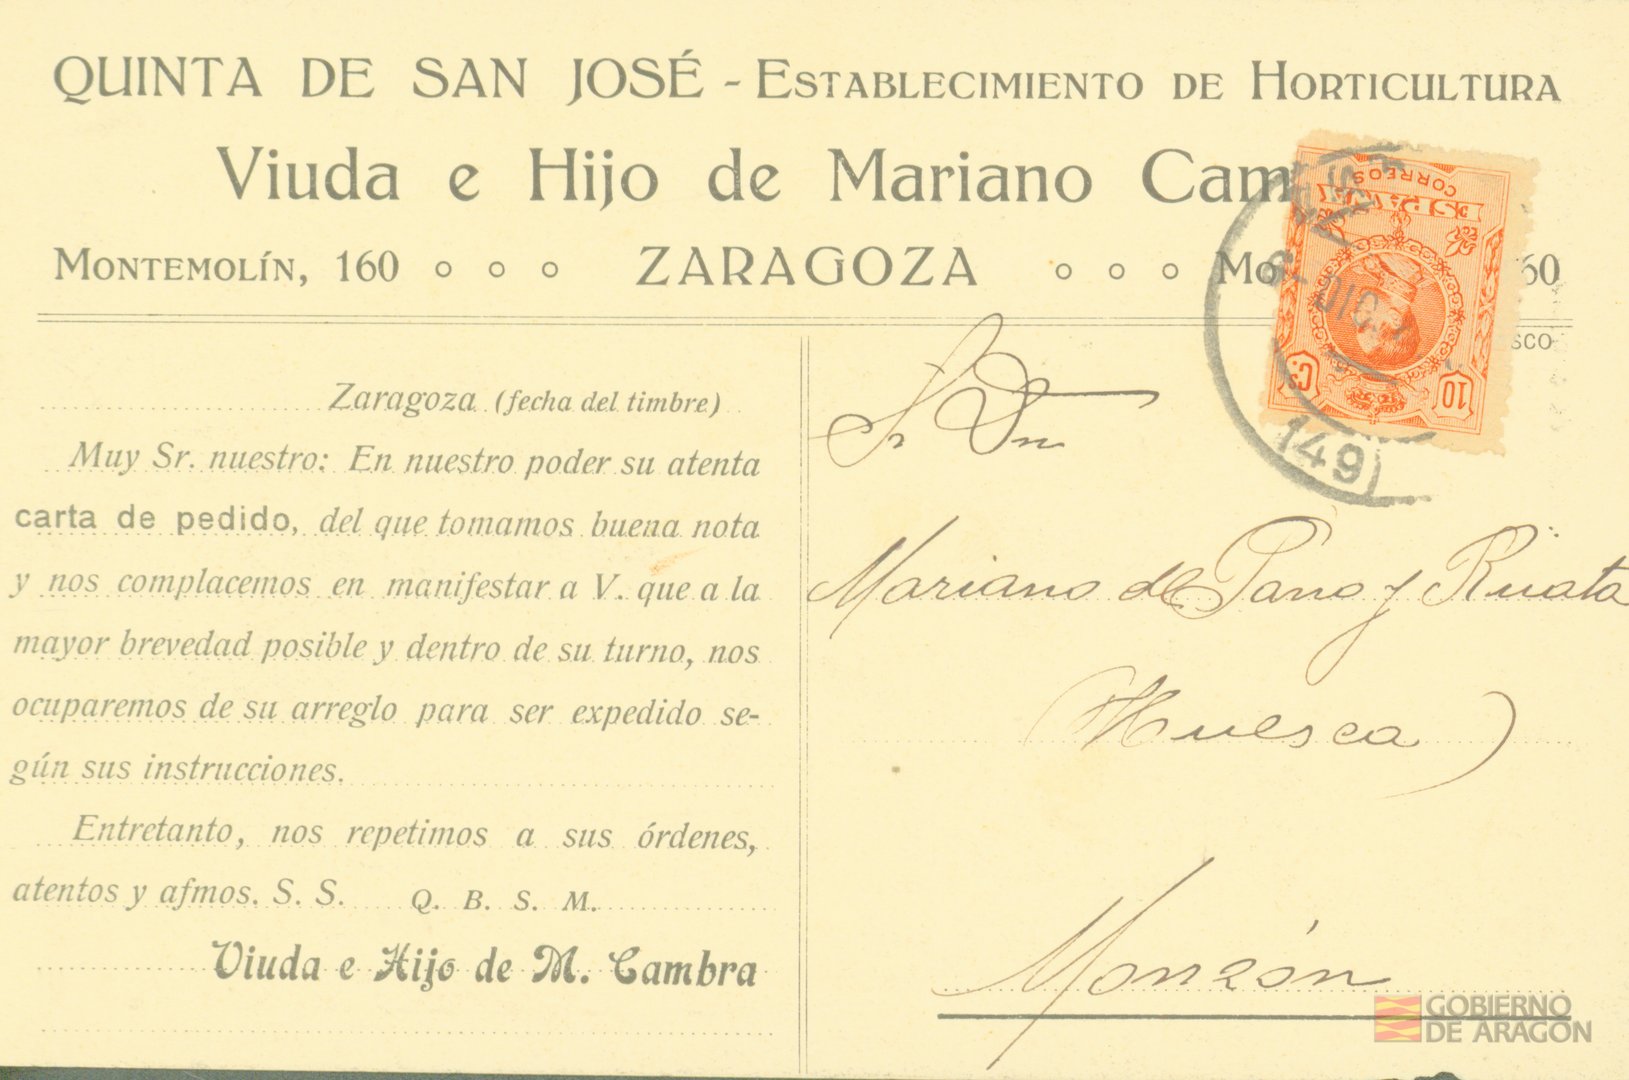 QUINTA DE SAN JOSÉ - ESTABLECIMIENTO DE HORTICULTURA
Viuda e Hijo de Mariano Cam
MONTEMOLÍN, 160 ZARAGOZA Mo 60
SCO
CORREOS
ESPAÑA
DIC.
10 Cs
149
Zaragoza (fecha del timbre)
Muy Sr. nuestro: En nuestro poder su atenta
carta de pedido, del que tomamos buena nota
y nos complacemos en manifestar a V. que a la
mayor brevedad posible y dentro de su turno, nos
ocuparemos de su arreglo para ser expedido se-
gún sus instrucciones.
Entretanto, nos repetimos a sus órdenes,
atentos y afmos. S. S. Q. B. S. M.
Viuda e Hijo de M. Cambra
Sr Dn
Mariano de Pano y Ruata
(Huesca)
Monzón
GOBIERNO
DE ARAGON